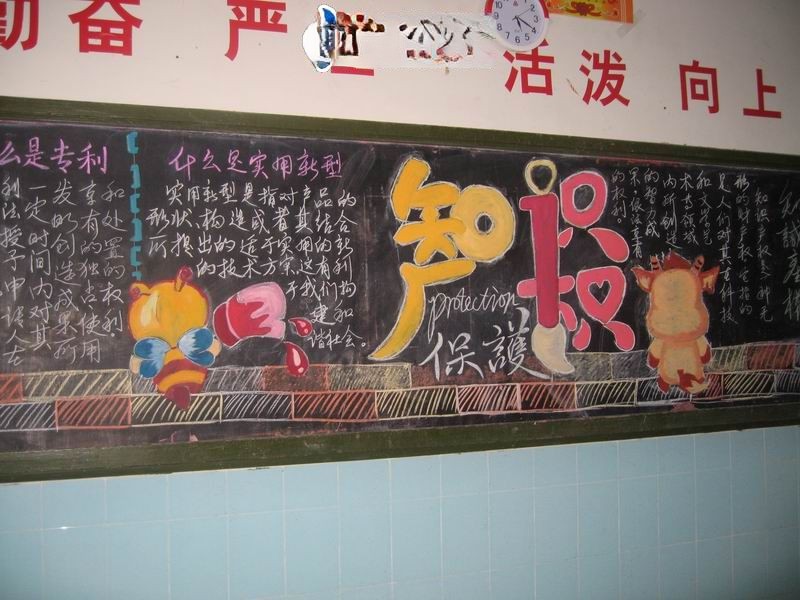 勤奋 严 活泼 向上
么是专利
利法授予申请人在
一定时间内对其
发明创造成果所
享有的独占使用
和处置的权利.
什么是实用新型
实用新型是指对产品的
形状、构造或者其结合
所提出的适于实用的新
的技术方案,这有利
于我们构
建和
谐社会。
知识
产权
protection
保護
知識產權
知识产权是一种无
形的财产权它指的
是人们对其在科技
和文学艺
术等领域
内所创造
的智力成
果依法享有
的权利